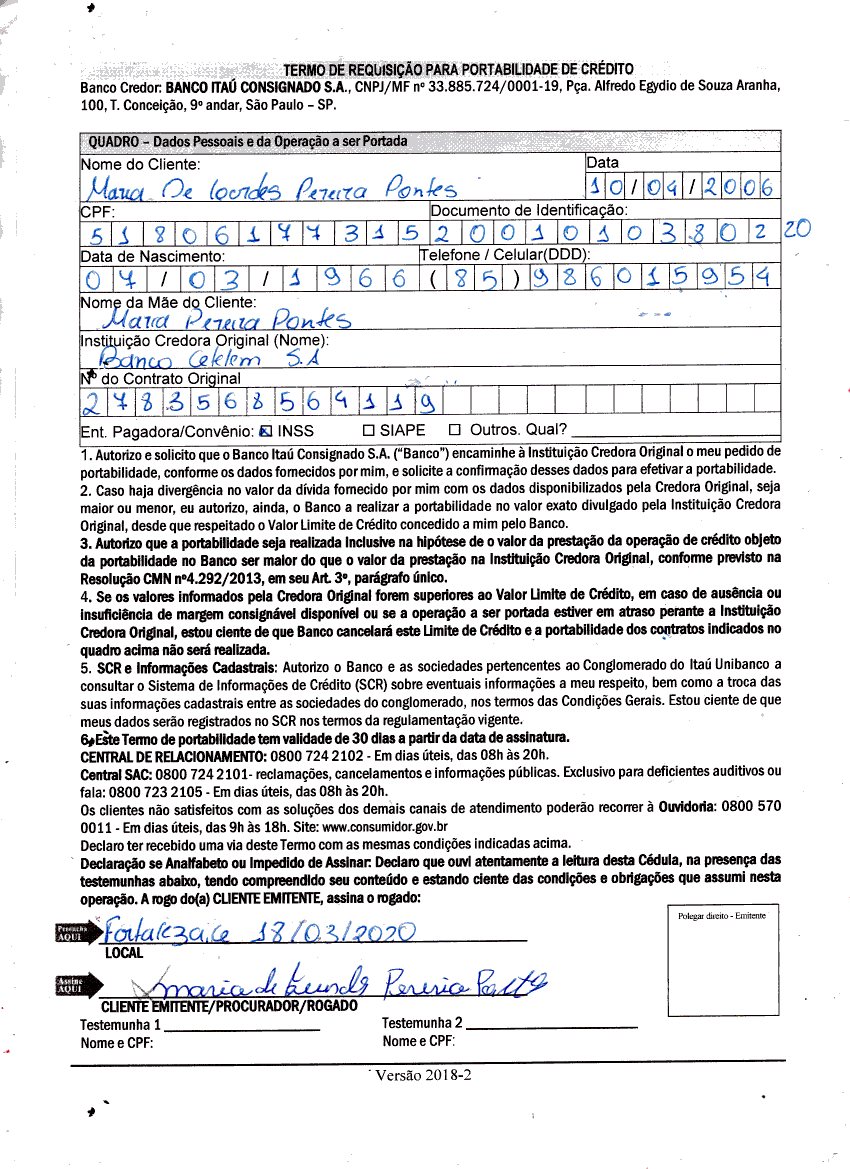 TERMO DE REQUISIÇÃO PARA PORTABILIDADE DE CRÉDITO
Banco Credor: BANCO ITAÚ CONSIGNADO S.A., CNPJ/MF nº 33.885.724/0001-19, Pça. Alfredo Egydio de Souza Aranha,
100, T. Conceição, 9º andar, São Paulo – SP.
QUADRO – Dados Pessoais e da Operação a ser Portada
Nome do Cliente: Data
Maria De Lourdes Pereira Pontes 10/04/2006
CPF: Documento de Identificação:
51806177315 2001010380220
Data de Nascimento: Telefone / Celular(DDD):
07/03/1966 (85)986015954
Nome da Mãe do Cliente:
Maria Pereira Pontes
Instituição Credora Original (Nome):
Banco Cetelem S.A
Nº do Contrato Original
2783568564119
Ent. Pagadora/Convênio: ☒ INSS ☐ SIAPE ☐ Outros. Qual?
1. Autorizo e solicito que o Banco Itaú Consignado S.A. (“Banco”) encaminhe à Instituição Credora Original o meu pedido de
portabilidade, conforme os dados fornecidos por mim, e solicite a confirmação desses dados para efetivar a portabilidade.
2. Caso haja divergência no valor da dívida fornecido por mim com os dados disponibilizados pela Credora Original, seja
maior ou menor, eu autorizo, ainda, o Banco a realizar a portabilidade no valor exato divulgado pela Instituição Credora
Original, desde que respeitado o Valor Limite de Crédito concedido a mim pelo Banco.
3. Autorizo que a portabilidade seja realizada inclusive na hipótese de o valor da prestação da operação de crédito objeto
da portabilidade no Banco ser maior do que o valor da prestação na Instituição Credora Original, conforme previsto na
Resolução CMN nº4.292/2013, em seu Art. 3º, parágrafo único.
4. Se os valores informados pela Credora Original forem superiores ao Valor Limite de Crédito, em caso de ausência ou
insuficiência de margem consignável disponível ou se a operação a ser portada estiver em atraso perante a Instituição
Credora Original, estou ciente de que Banco cancelará este Limite de Crédito e a portabilidade dos contratos indicados no
quadro acima não será realizada.
5. SCR e Informações Cadastrais: Autorizo o Banco e as sociedades pertencentes ao Conglomerado do Itaú Unibanco a
consultar o Sistema de Informações de Crédito (SCR) sobre eventuais informações a meu respeito, bem como a troca das
suas informações cadastrais entre as sociedades do conglomerado, nos termos das Condições Gerais. Estou ciente de que
meus dados serão registrados no SCR nos termos da regulamentação vigente.
6. Este Termo de portabilidade tem validade de 30 dias a partir da data de assinatura.
CENTRAL DE RELACIONAMENTO: 0800 724 2102 - Em dias úteis, das 08h às 20h.
Central SAC: 0800 724 2101- reclamações, cancelamentos e informações públicas. Exclusivo para deficientes auditivos ou
fala: 0800 723 2105 - Em dias úteis, das 08h às 20h.
Os clientes não satisfeitos com as soluções dos demais canais de atendimento poderão recorrer à Ouvidoria: 0800 570
0011 - Em dias úteis, das 9h às 18h. Site: www.consumidor.gov.br
Declaro ter recebido uma via deste Termo com as mesmas condições indicadas acima.
Declaração se Analfabeto ou Impedido de Assinar: Declaro que ouvi atentamente a leitura desta Cédula, na presença das
testemunhas abaixo, tendo compreendido seu conteúdo e estando ciente das condições e obrigações que assumi nesta
operação. A rogo do(a) CLIENTE EMITENTE, assina o rogado:
Polegar direito - Emitente
Preencha AQUI Fortaleza,ce 18/03/2020
LOCAL
Assine AQUI maria de Lourdes Pereria Ponts
CLIENTE EMITENTE/PROCURADOR/ROGADO
Testemunha 1 Testemunha 2
Nome e CPF: Nome e CPF:
Versão 2018-2